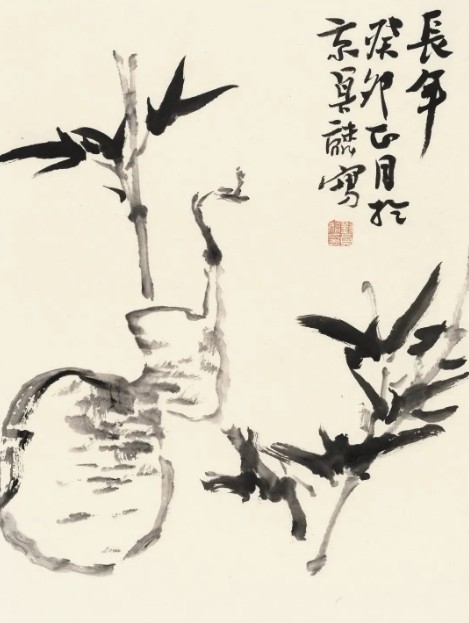 長年
癸卯正月於
京 寫